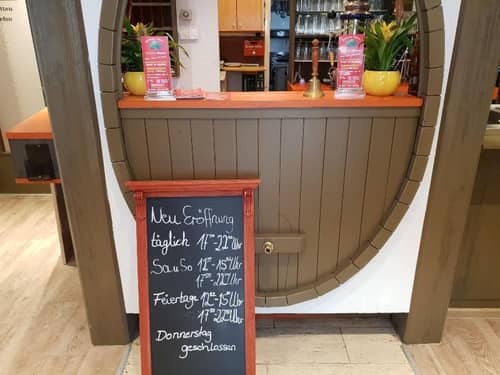 Neu Eröffnung
täglich 17⁰⁰-22⁰⁰Uhr
Sa u So 12⁰⁰-15⁰⁰Uhr
17⁰⁰-22⁰⁰Uhr
Feiertage 12⁰⁰-15⁰⁰Uhr
17⁰⁰-22⁰⁰Uhr
Donnerstag
geschlossen